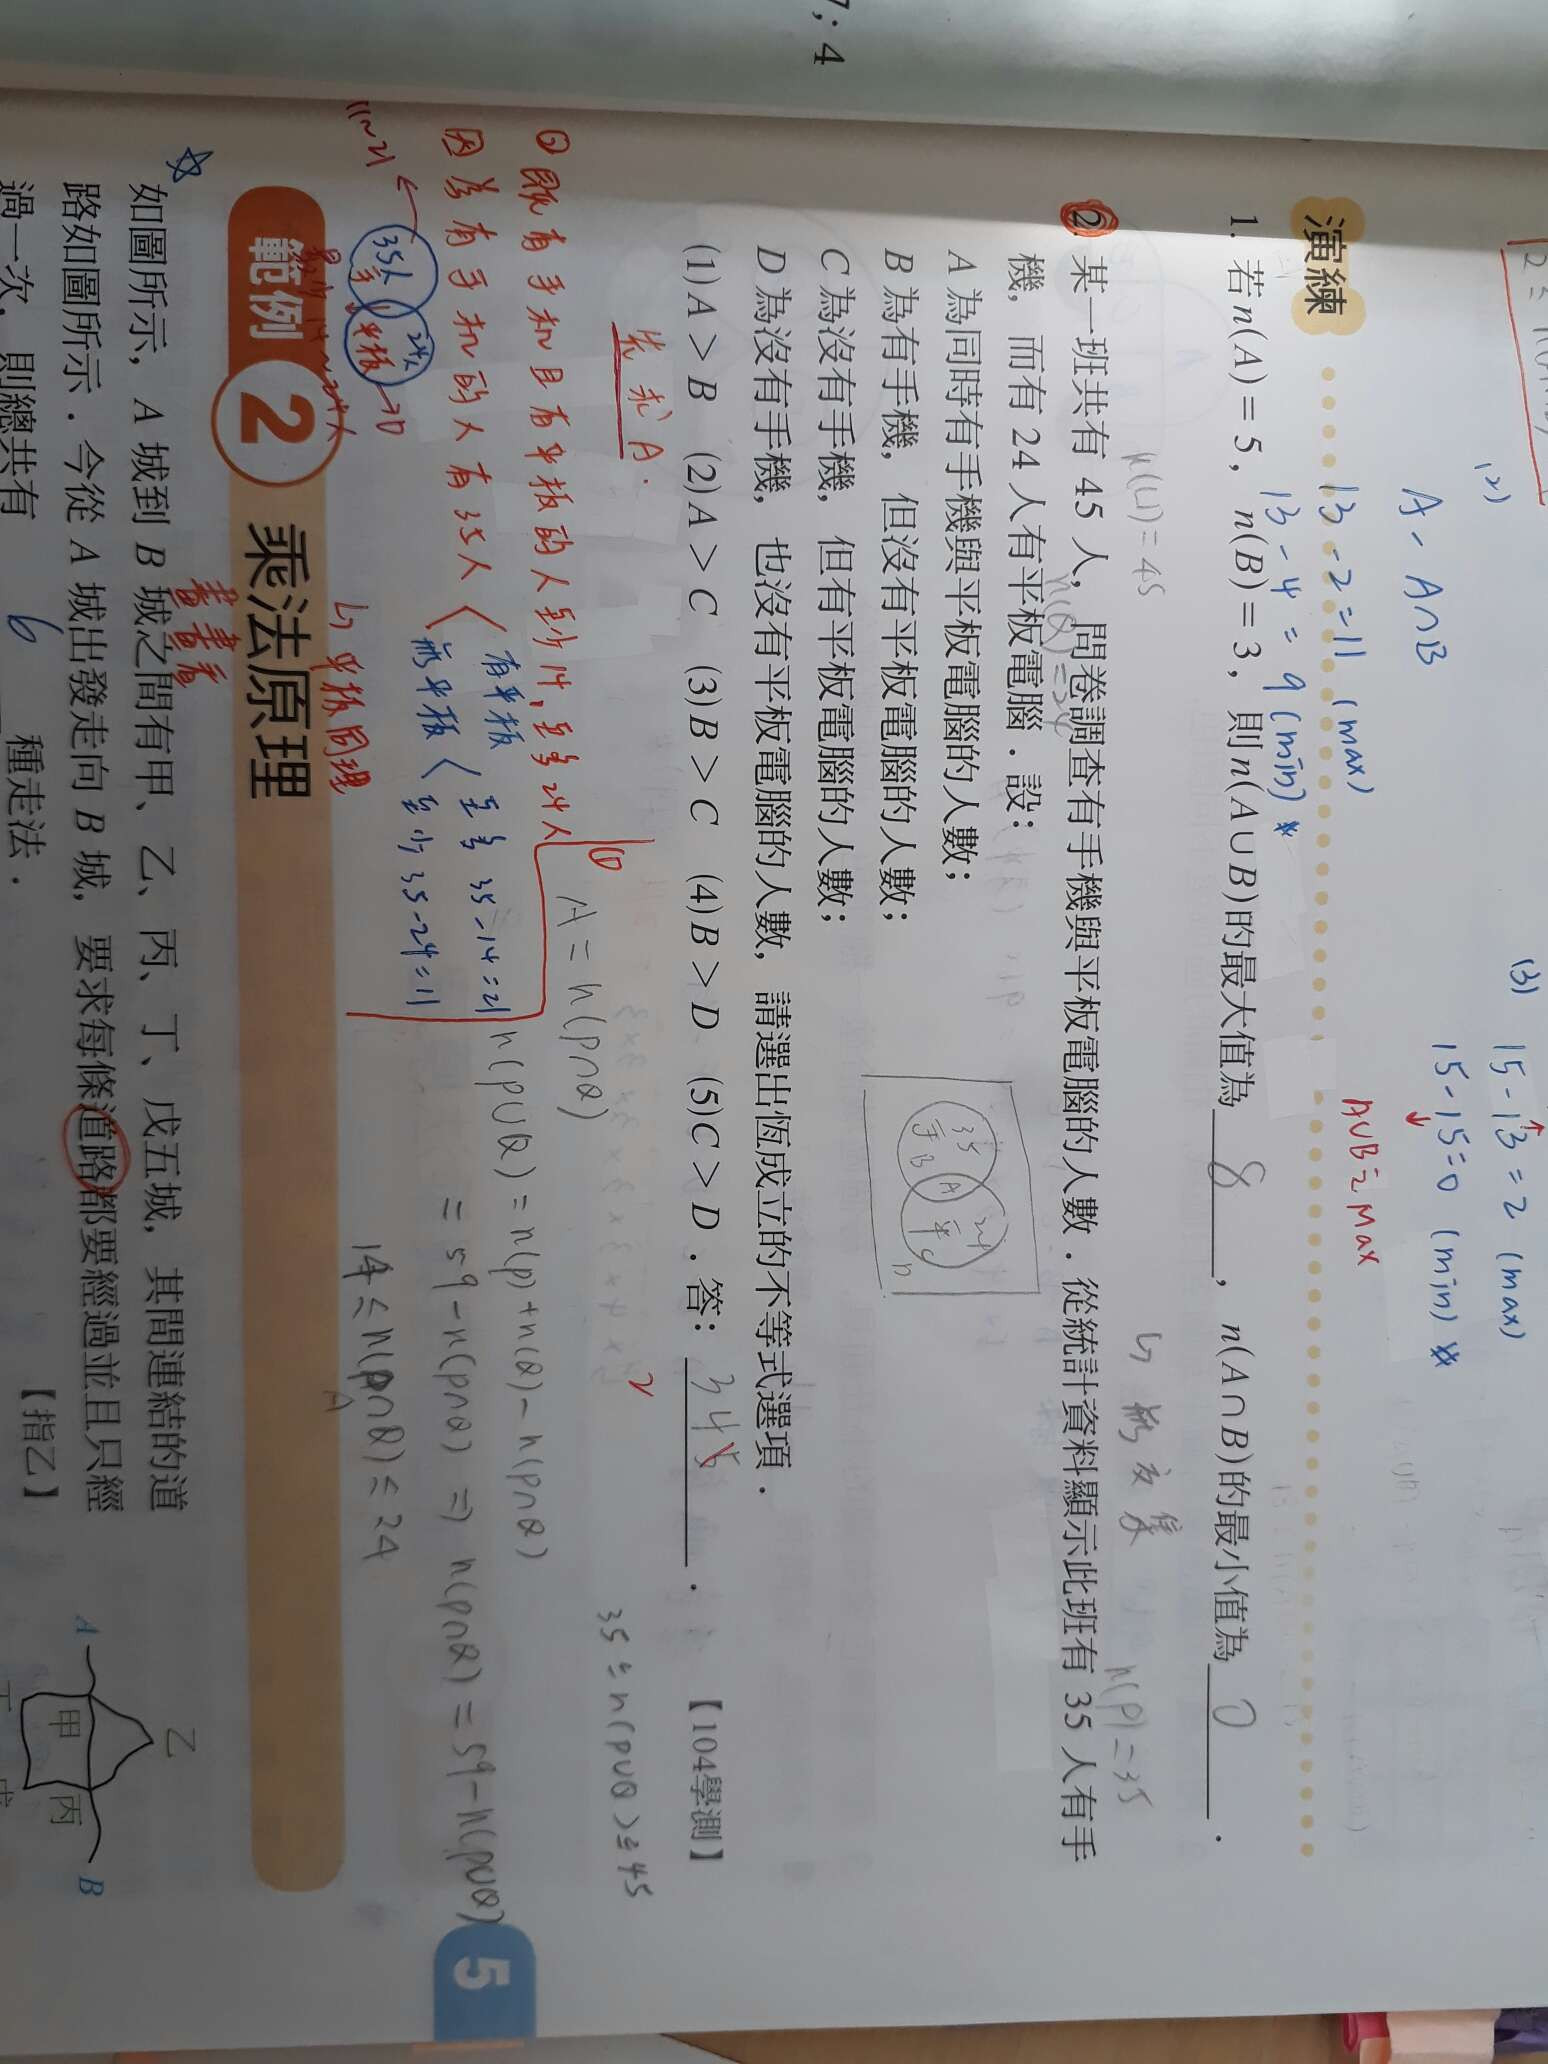 7; 4
(2)
A - A∩B
13 - 2 = 11 (max)
13 - 4 = 9 (min) *
(3)
15 - 13 = 2 (max)
15 - 15 = 0 (min) *
A∪B = Max
演練
1. 若 n(A) = 5, n(B) = 3, 則 n(A∪B)的最大值為 8 , n(A∩B)的最小值為 0 .
n(U) = 45
↳ 無交集
n(P) = 35
2. 某一班共有 45 人, 問卷調查有手機與平板電腦的人數．從統計資料顯示此班有 35 人有手
機, 而有 24 人有平板電腦．設：
n(Q) = 24
A 為同時有手機與平板電腦的人數；
B 為有手機, 但沒有平板電腦的人數；
C 為沒有手機, 但有平板電腦的人數；
D 為沒有手機, 也沒有平板電腦的人數, 請選出恆成立的不等式選項．
35
手 B
A
24
平 C
D
(1) A > B (2) A > C (3) B > C (4) B > D (5) C > D．答： 3 4 5 ． 【104學測】
2
先求 A.
35 ≤ n(P∪Q) ≤ 45
既有手机且有平板的人至少 14, 至多 24 人
A = n(P∩Q)
因為有手机的人有 35 人
有平板
至多 35 - 14 = 21
無平板
至少 35 - 24 = 11
n(P∪Q) = n(P) + n(Q) - n(P∩Q)
= 59 - n(P∩Q) ⇒ n(P∩Q) = 59 - n(P∪Q)
11~21
35人
手
24人
平板
↳ 平板同理
14 ≤ n(P∩Q) ≤ 24
A
5
範例 2 乘法原理
如圖所示, A 城到 B 城之間有甲、乙、丙、丁、戊五城, 其間連結的道
路如圖所示．今從 A 城出發走向 B 城, 要求每條道路都要經過並且只經
過一次, 則總共有 6 種走法． 【指乙】
乙
A
甲
丙
B
丁
戊